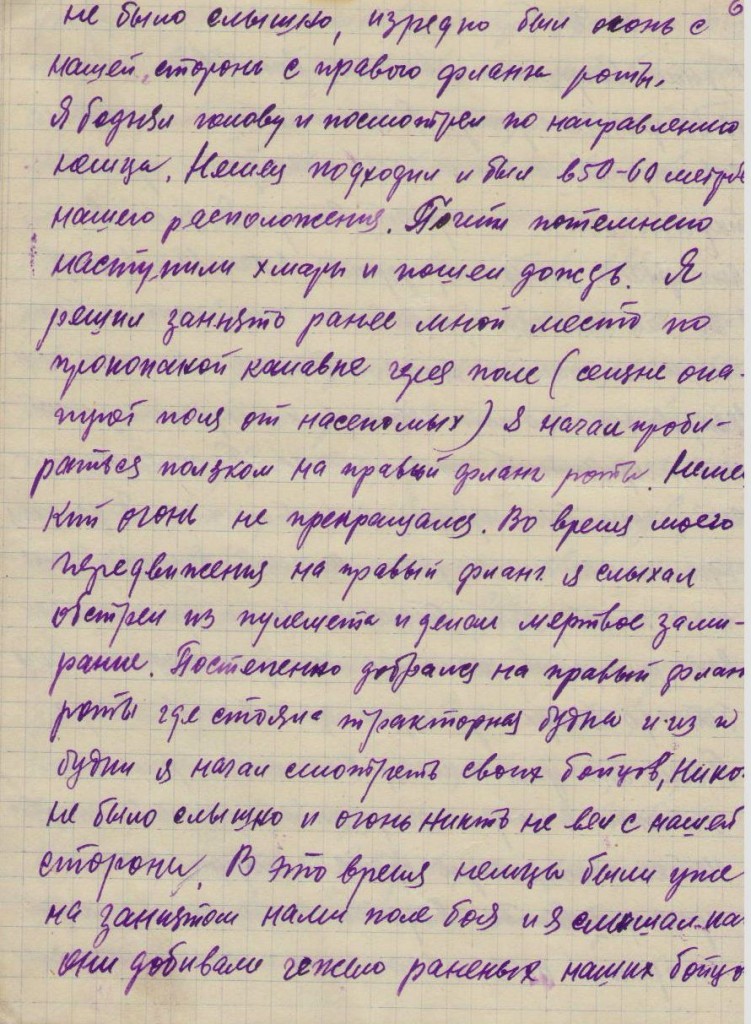 6
не было слышно, изредно был огонь с
нашей стороны с правого фланга роты.
Я боднял голову и посмотрел по направлению
немца. Немец подходил и был в 50-60 метрах
нашего расположения. Почти потемнело
наступили хмары и пошел дождь. Я
решил занять ранее мной место по
пропопаной канавке через поле (
поля от насекомых) я начал проби-
раться ползком на правый фланг роты. Неме
кий огонь не прекращался. Во время моего
передвижения на правый фланг я слыхал
обстрел из пулемета и делал мертвое зами-
рание. Постепенно добрался на правый флан
роты где стояла тракторная будка и из
будки я начал смотреть своих бойцов, Нико
не было слышно и огонь никто не вел с нашей
стороны. В это время немцы были уже
на занятом нами поле боя и я слышал ка
они добивали тежело раненых наших бойцо